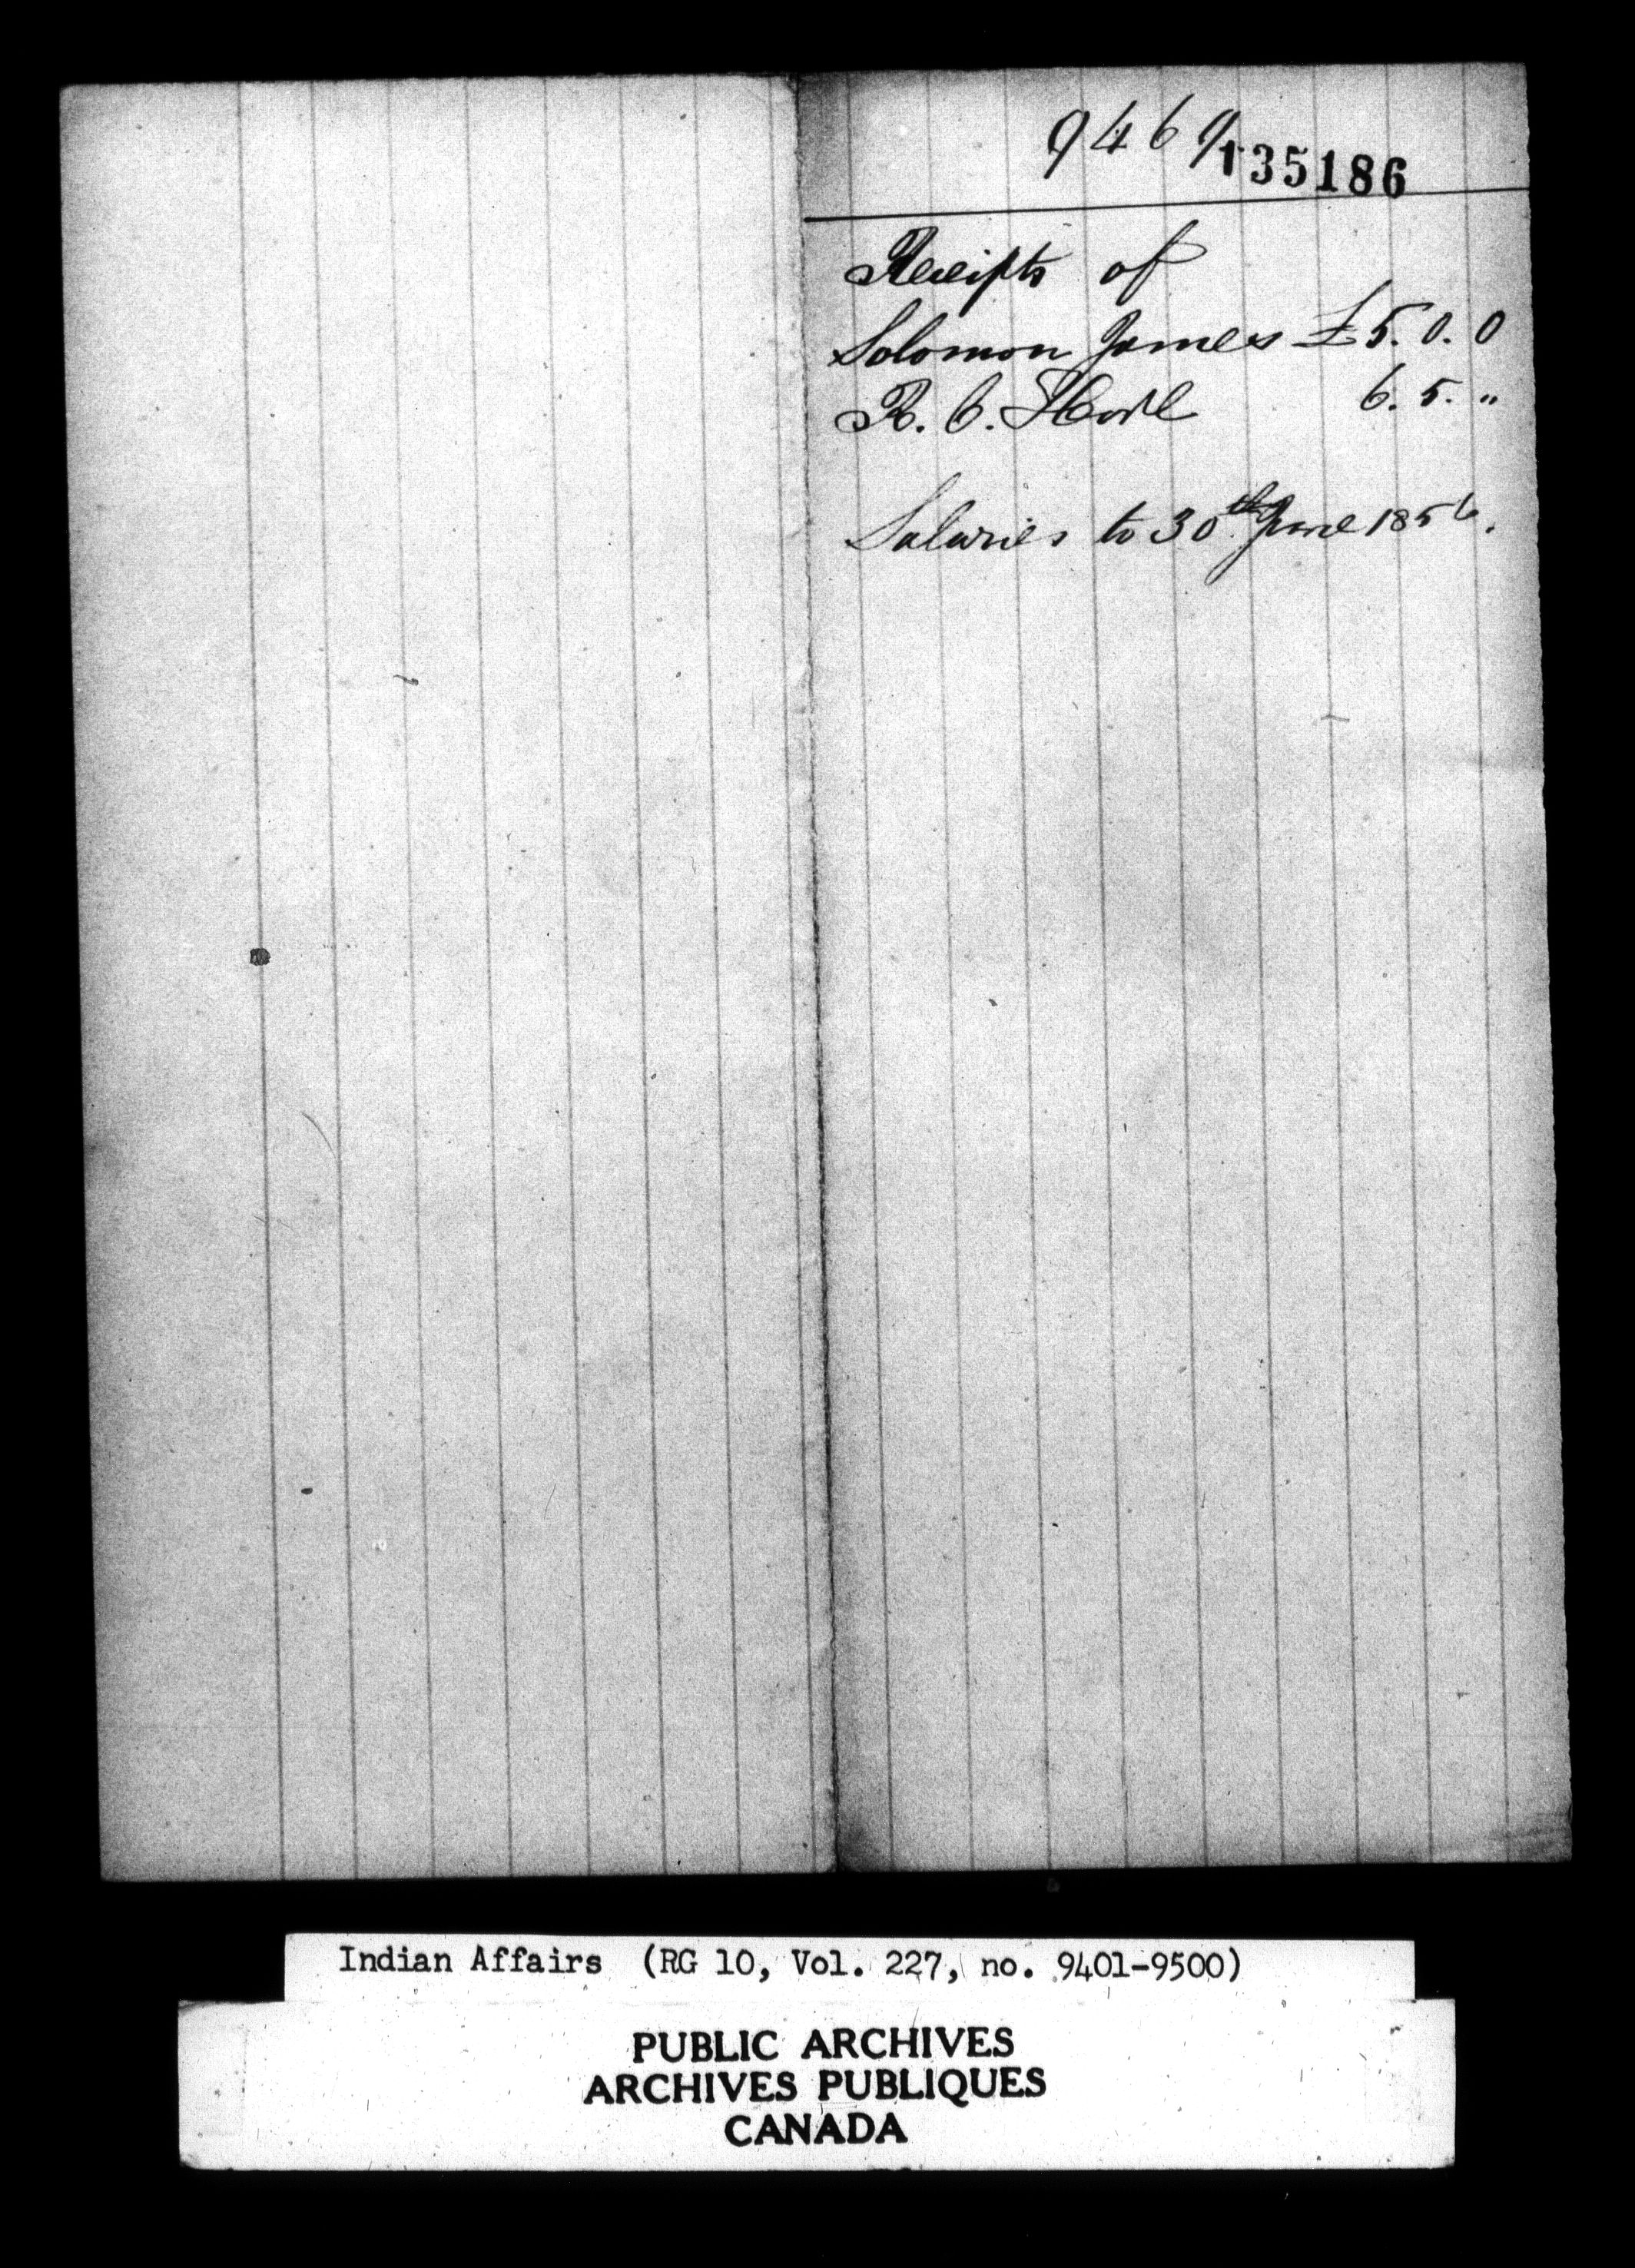 9469
135186
Receipts of
Solomon James £5. 0. 0
R. C. 6. 5. "
Salaries to 30th June 1856.
Indian Affairs (RG 10, Vol. 227, no. 9401-9500)
PUBLIC ARCHIVES
ARCHIVES PUBLIQUES
CANADA